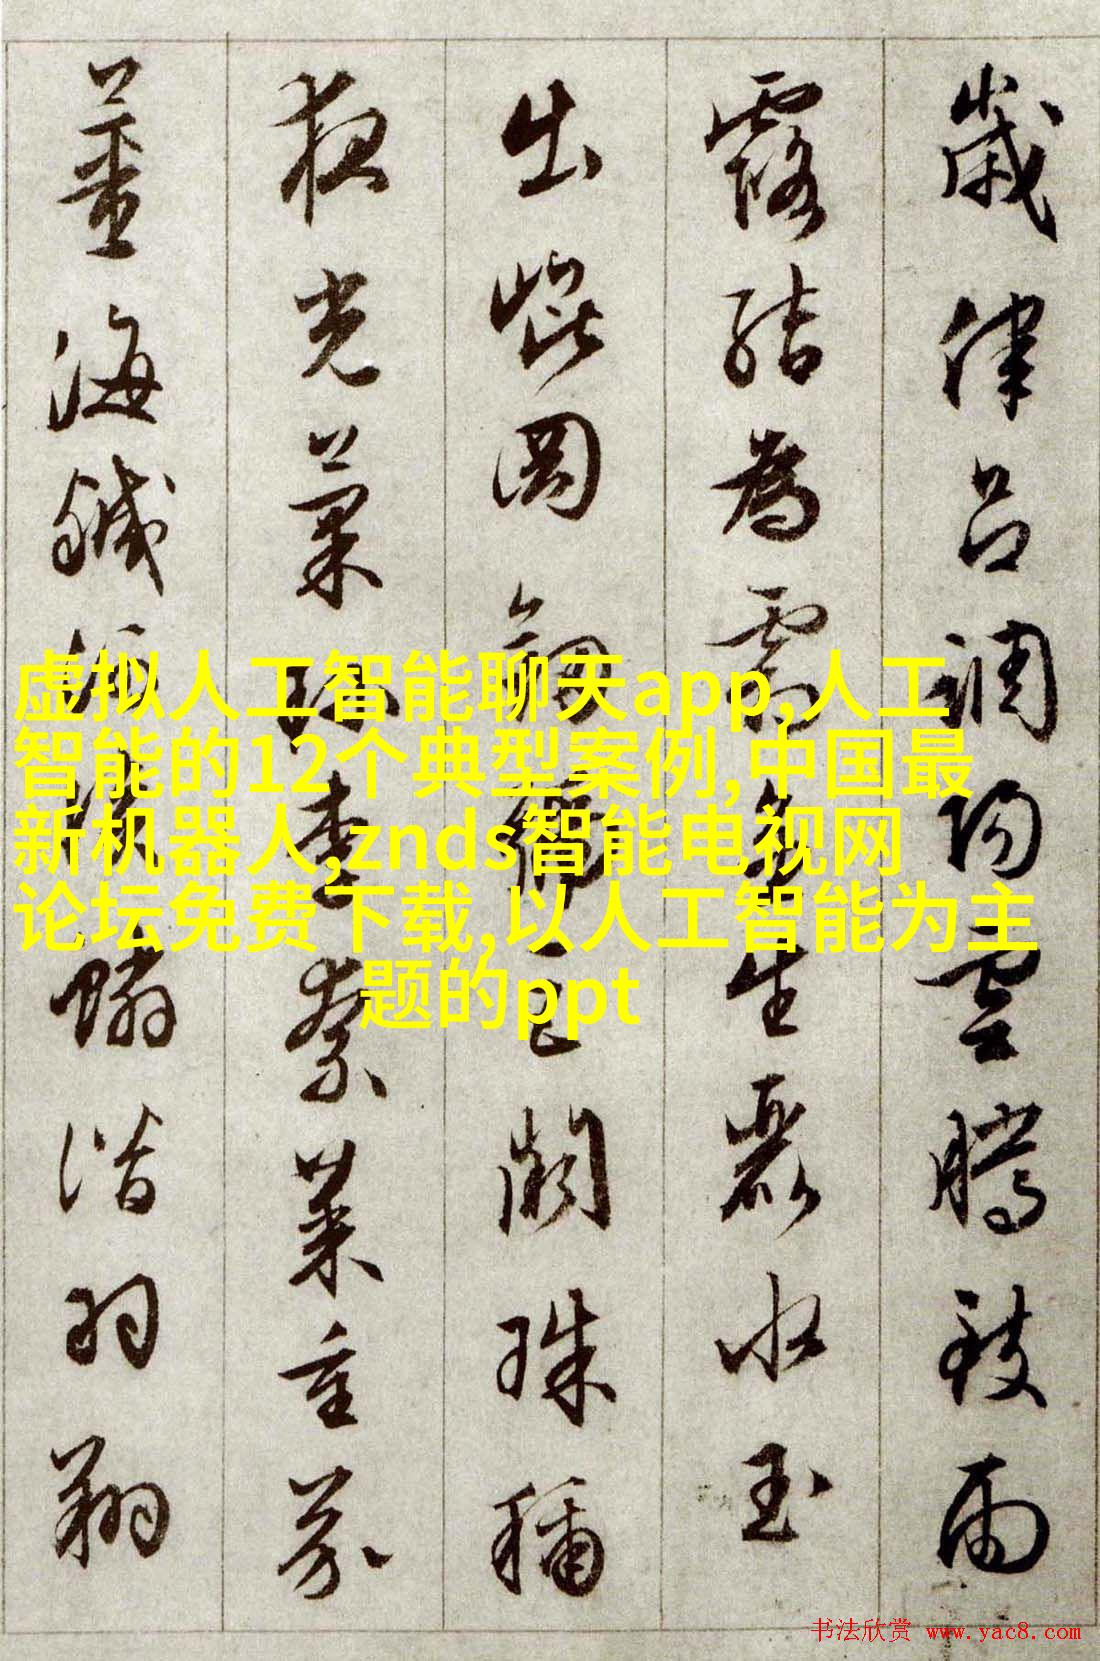 歲律呂調陽雲騰致雨
露結為霜金生麗水玉
出崐岡劒號巨闕珠稱
夜光菓珍李柰菜重芥
薑海鹹河淡鱗潛羽翔
虚拟人工智能聊天app,人工
智能的12个典型案例,中国最
新机器人,znds智能电视网
论坛免费下载,以人工智能为主
题的ppt
书法欣赏 www.yac8.com